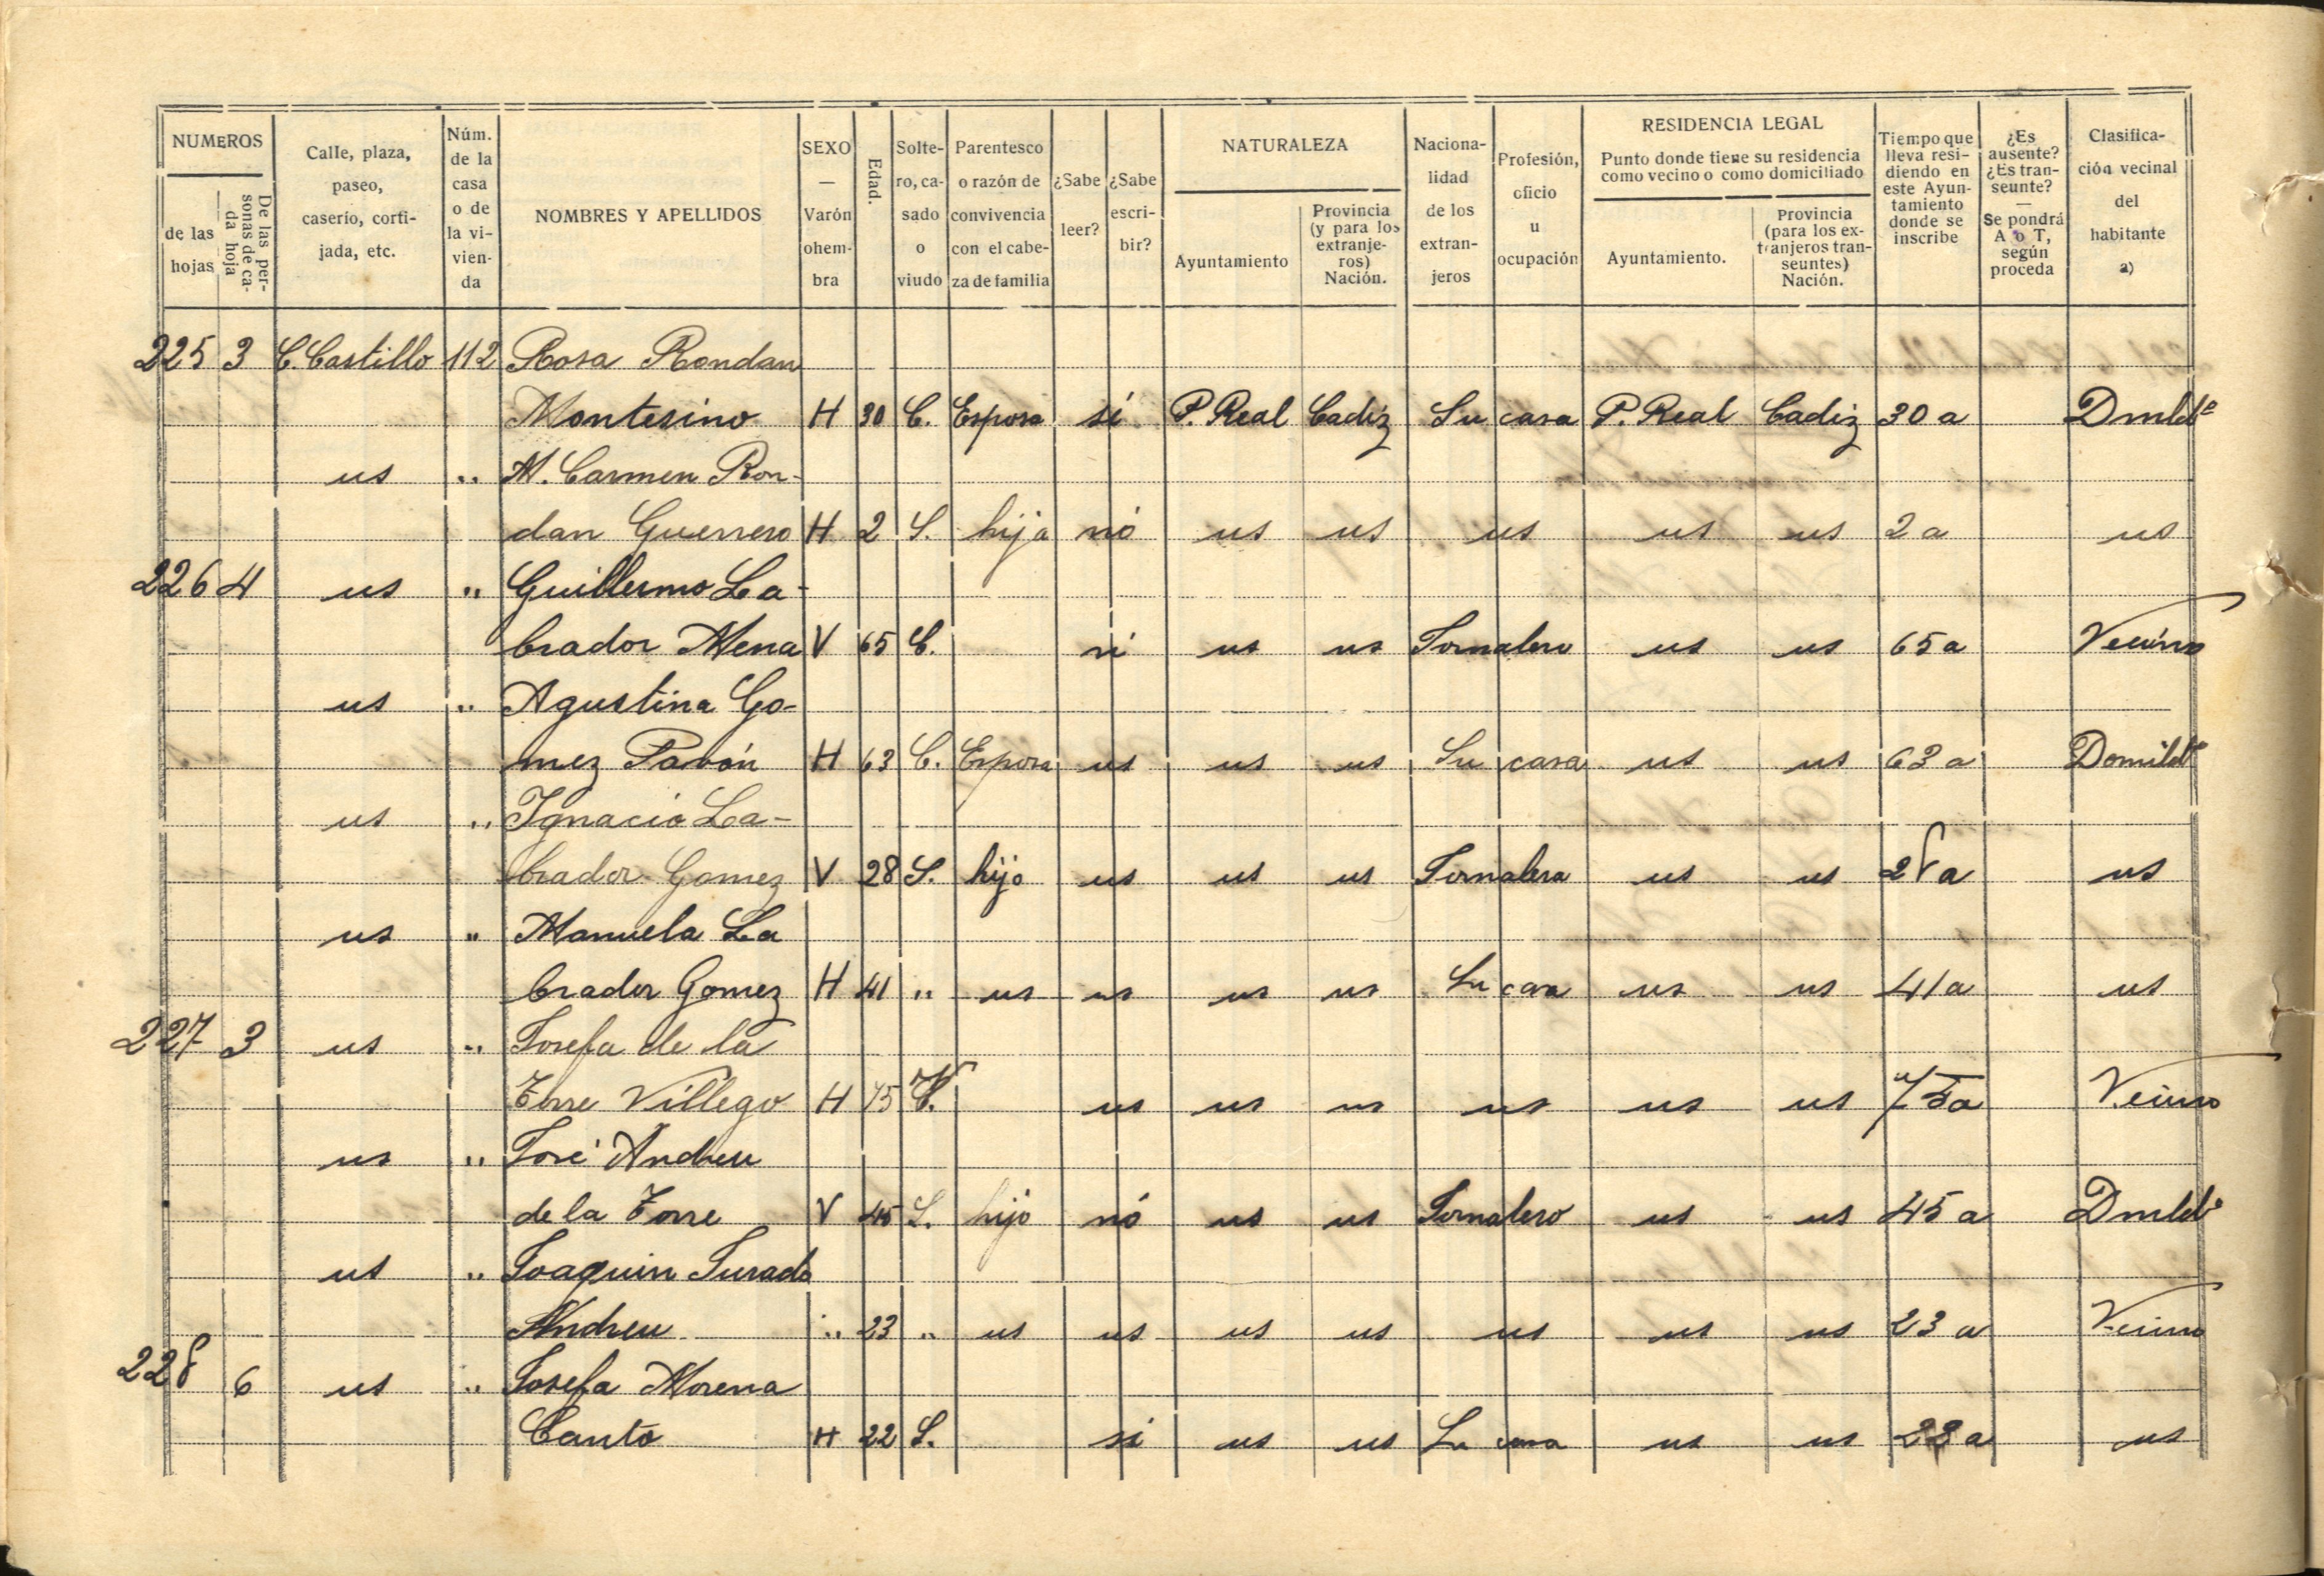 NUMEROS
de las hojas
De las personas de cada hoja
Calle, plaza, paseo, caserío, cortijada, etc.
Núm. de la casa o de la vivienda
NOMBRES Y APELLIDOS
SEXO — Varón ohembra
Edad.
Soltero, casado o viudo
Parentesco o razón de convivencia con el cabeza de familia
¿Sabe leer?
¿Sabe escribir?
NATURALEZA
Ayuntamiento
Provincia (y para los extranjeros) Nación.
Nacionalidad de los extranjeros
Profesión, oficio u ocupación
RESIDENCIA LEGAL
Punto donde tiene su residencia como vecino o como domiciliado
Ayuntamiento.
Provincia (para los extranjeros transeuntes) Nación.
Tiempo que lleva residiendo en este Ayuntamiento donde se inscribe
¿Es ausente? ¿Es transeunte? — Se pondrá A o T, según proceda
Clasificación vecinal del habitante a)
225 3 C. Castillo 112 Rosa Rondan
Montesino H 30 C. Esposa sí P. Real Cadiz Su casa P. Real Cadiz 30 a Dmldº
us " M. Carmen Ron-
dan Guerrero H 2 S. hija nó us us us us us 2 a us
226 4 us " Guillermo La-
brador Mena V 65 C. si us us Jornalero us us 65 a Vecino
us " Agustina Go-
mez Pavón H 63 C. Esposa us us us Su casa us us 63 a Domildº
us " Ignacio La-
brador Gomez V 28 S. hijo us us us Jornalero us us 28 a us
us " Manuela La
brador Gomez H 41 " us us us us Su casa us us 41 a us
227 3 us " Josefa de la
Torre Villego H 75 V. us us us us us us 75 a Vecino
us " José Andreu
de la Torre V 45 S. hijo nó us us Jornalero us us 45 a Dmldº
us " Joaquin Jurado
Andreu " 23 " us us us us us us us 23 a Vecino
228 6 us " Josefa Morena
Canto H 22 S. si us us Su casa us us 22 a us